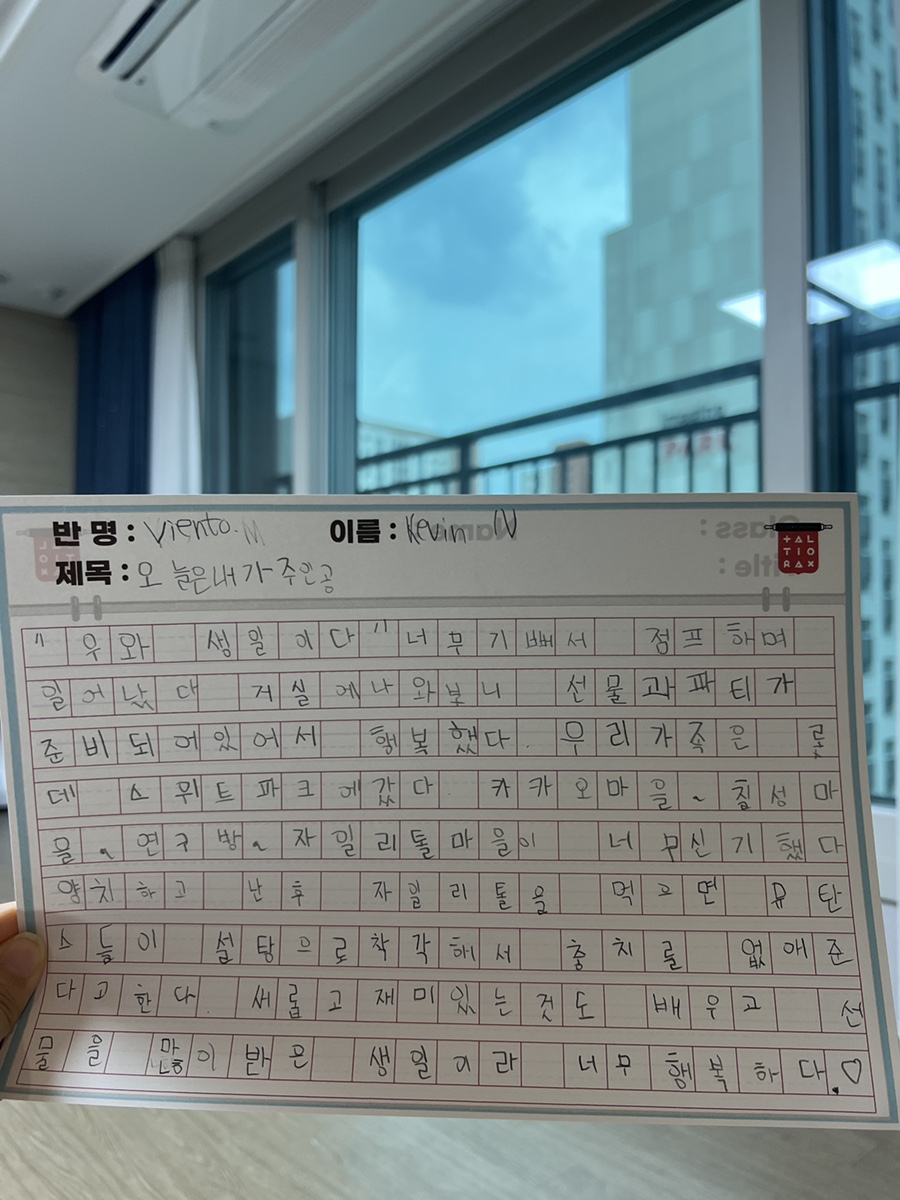 반 명 : Viento. M 이름 : Kevin
제목 : 오 늘은 내 가 주인공
TAL
TIO
RAX
"우와 생일이다"너무기뻐서 점프하며
일어났다 거실에나와보니 선물과파티가
준비되어있어서 행복했다. 우리가족은 롯
데 스위트파크에갔다. 카카오마을~ 칠성마
을~연구방~자일리톨마을이 너무신기했다
양치하고 난후 자일리톨을 먹으면 뮤탄
스들이 설탕으로착각해서 충치를 없애준
다고 한다. 새롭고재미있는것도 배우고 선
물을 많이받은 생일이라 너무행복하다.♡